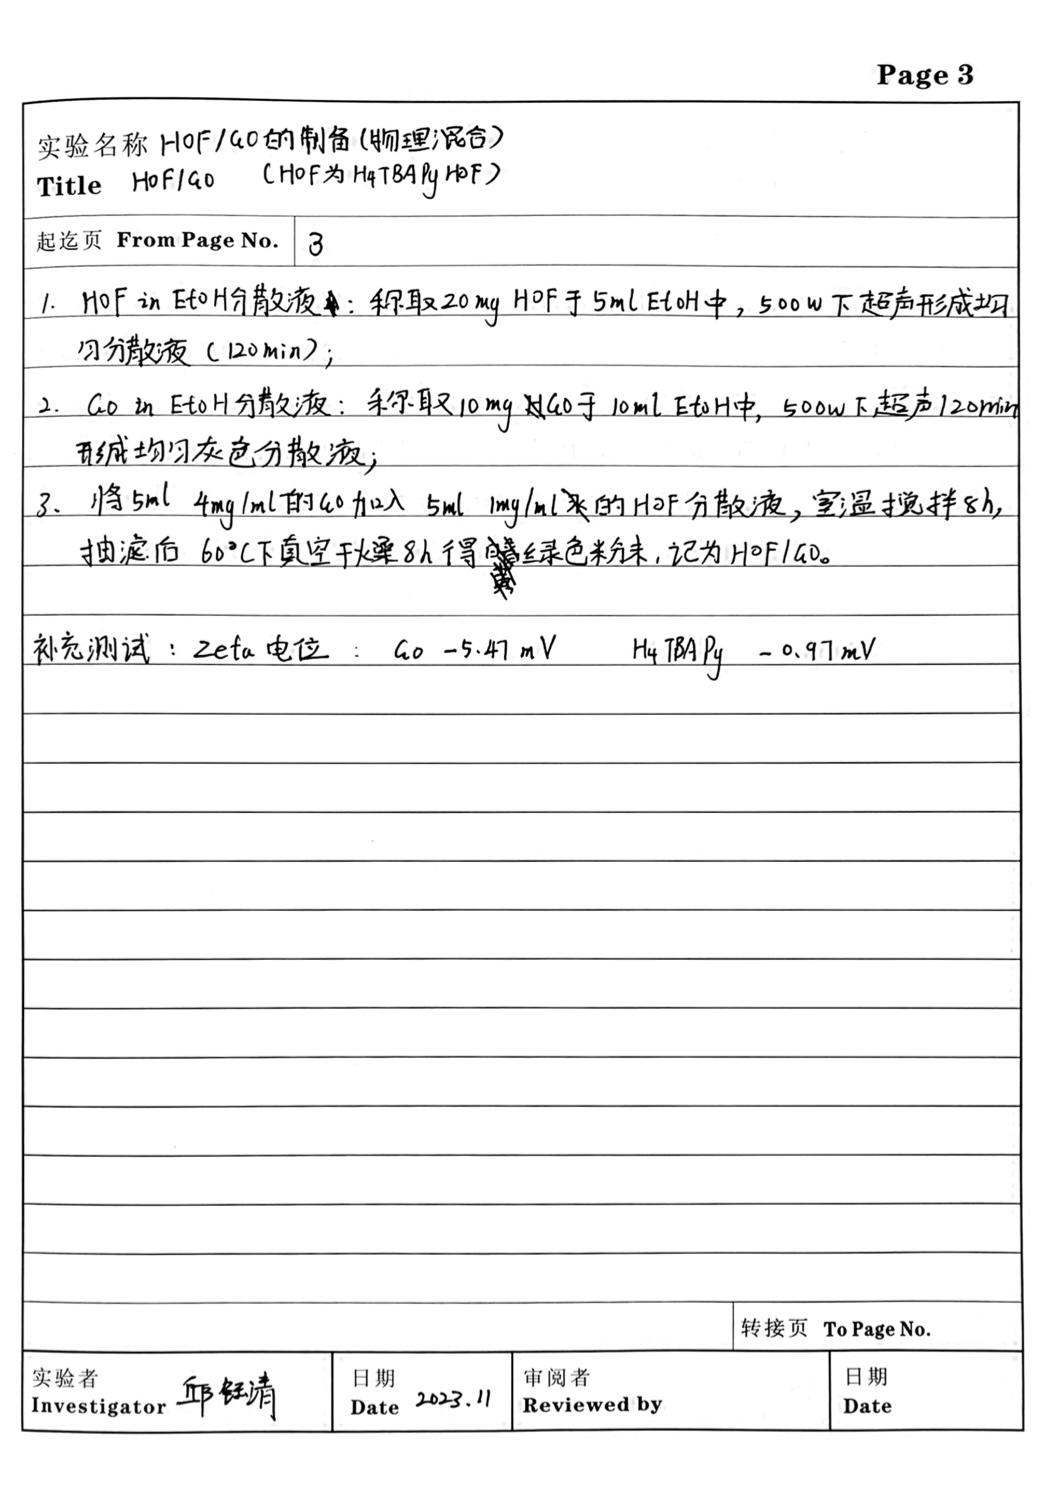 Page 3
实验名称 HOF/GO的制备(物理混合)
Title HOF/GO (HOF为H4TBAPy HOF)
起迄页 From Page No. 3
1. HOF in EtOH分散液：称取20mg HOF于5ml EtOH中，500W下超声形成均
匀分散液（120min）；
2. GO in EtOH分散液：称取10mg GO于10ml EtOH中，500W下超声120min
形成均匀灰色分散液；
3、将5ml 4mg/ml的GO加入 5ml 1mg/ml的HOF分散液，室温搅拌8h，
抽滤后 60°C下真空干燥8h得绿色粉末，记为HOF/GO。
补充测试：Zeta电位： GO -5.47mV H4TBAPy -0.97mV
转接页 To Page No.
实验者 日期 审阅者 日期
Investigator 邱钰清 Date 2023.11 Reviewed by Date